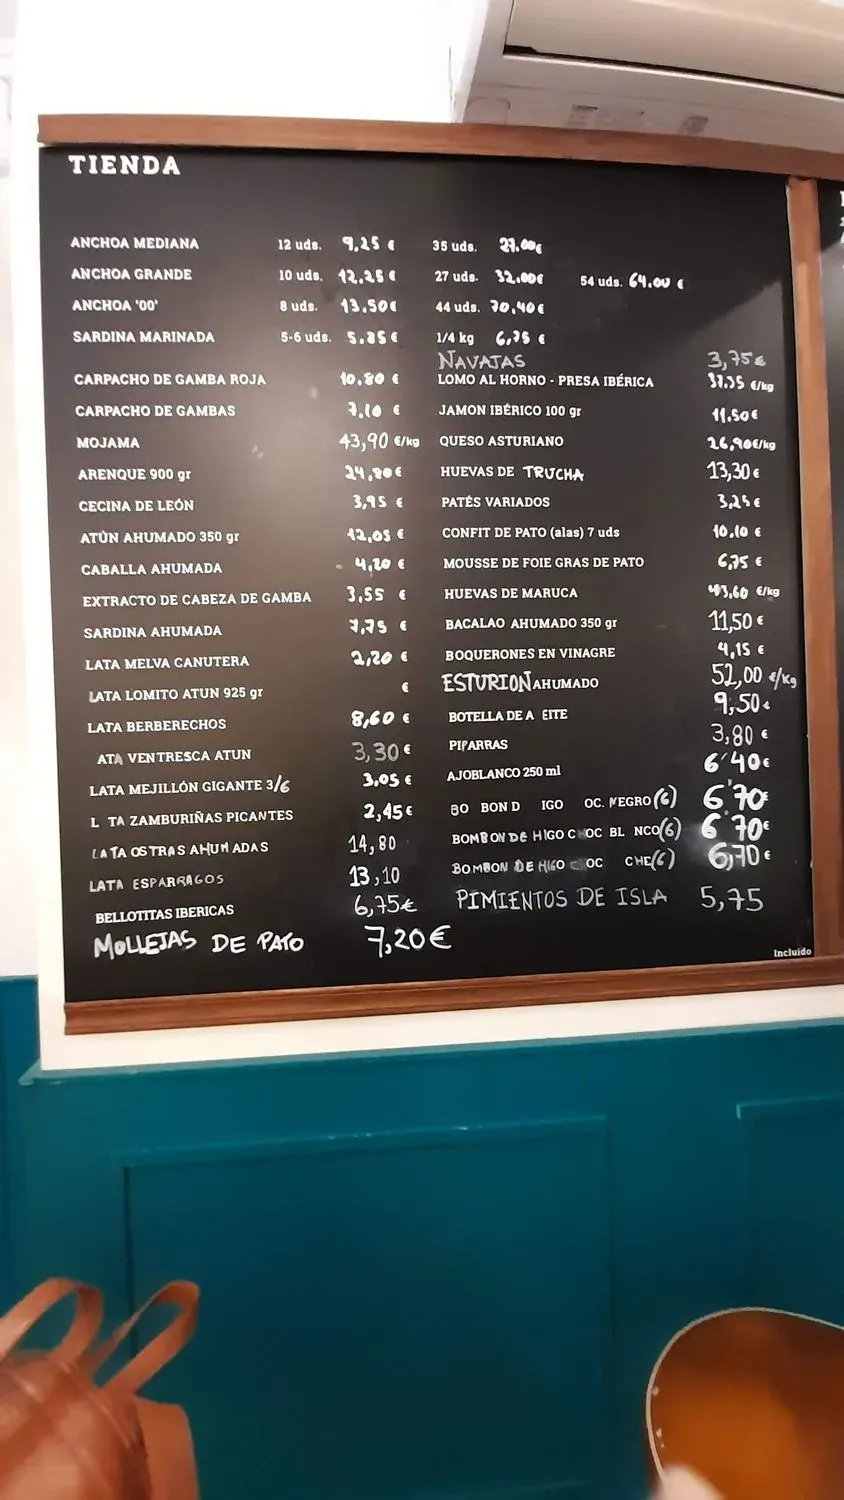 TIENDA
ANCHOA MEDIANA 12 uds. 9,25 € 35 uds. 27.00€
ANCHOA GRANDE 10 uds. 12,25 € 27 uds. 32.00€ 54 uds. 64.00 €
ANCHOA '00' 8 uds. 13.50€ 44 uds. 70,40€
SARDINA MARINADA 5-6 uds. 5.85 € 1/4 kg 6,75 €
NAVAJAS 3,75€
CARPACHO DE GAMBA ROJA 10.80 € LOMO AL HORNO - PRESA IBÉRICA €/kg
CARPACHO DE GAMBAS 7,10 € JAMON IBÉRICO 100 gr 11.50€
MOJAMA 43,90 €/kg QUESO ASTURIANO 26,90€/kg
ARENQUE 900 gr 24,80€ HUEVAS DE TRUCHA 13,30€
CECINA DE LEÓN 3,95 € PATÉS VARIADOS 3,25€
ATÚN AHUMADO 350 gr 12,05 € CONFIT DE PATO (alas) 7 uds 10.10 €
CABALLA AHUMADA 4,20 € MOUSSE DE FOIE GRAS DE PATO 6,75 €
EXTRACTO DE CABEZA DE GAMBA 3,55 € HUEVAS DE MARUCA 43,60 €/kg
SARDINA AHUMADA 7,75 € BACALAO AHUMADO 350 gr 11,50 €
LATA MELVA CANUTERA 2,20 € BOQUERONES EN VINAGRE 4,15 €
LATA LOMITO ATUN 925 gr € ESTURION AHUMADO 52,00 €/Kg
LATA BERBERECHOS 8,60 € BOTELLA DE A EITE 9,50€
ATA VENTRESCA ATUN 3,30€ PIPARRAS 3,80 €
LATA MEJILLÓN GIGANTE 3/6 3,05 € AJOBLANCO 250 ml 6'40€
L TA ZAMBURIÑAS PICANTES 2,45€ BO BON D IGO OC. NEGRO (6) 6'70€
LATA OSTRAS AHUMADAS 14,80 BOMBON DE HIGO C OC BL NCO (6) 6'70€
LATA ESPARRAGOS 13,10 BOMBON DE HIGO OC CHE (6) 6,70€
BELLOTITAS IBERICAS 6,75€ PIMIENTOS DE ISLA 5,75
MOLLEJAS DE PATO 7,20€
Incluído